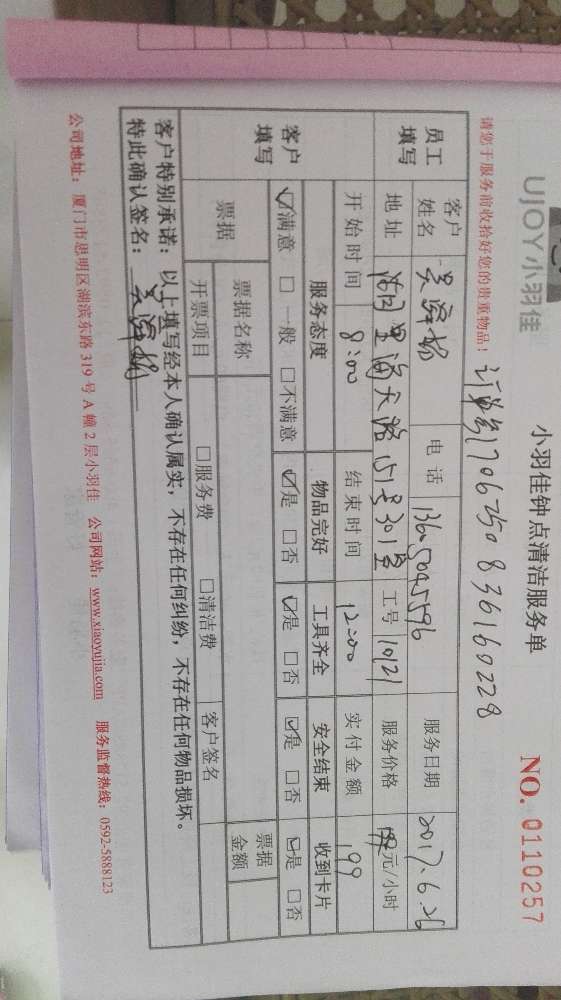 UJOY小羽佳
小羽佳钟点清洁服务单
NO. 0110257
请您于服务前收拾好您的贵重物品！
订单号170625083616 0228
员工填写
客户姓名 吴泽杨 电话 13605095596 服务日期 2017.6.26
地址 海天路151号301室 工号 10121 服务价格 元/小时
开始时间 8:00 结束时间 12:00 实付金额 199
客户填写
服务态度 物品完好 工具齐全 安全结束 收到卡片
☑满意 □一般 □不满意 ☑是 □否 ☑是 □否 ☑是 □否 ☑是 □否
票据 票据名称 票据金额
开票项目 □服务费 □清洁费 客户签名
客户特别承诺：以上填写经本人确认属实，不存在任何纠纷，不存在任何物品损坏。
特此确认签名：吴泽杨
公司地址：厦门市思明区湖滨东路319号A幢2层小羽佳 公司网站：www.xiaoyujia.com 服务监督热线：0592-5888123